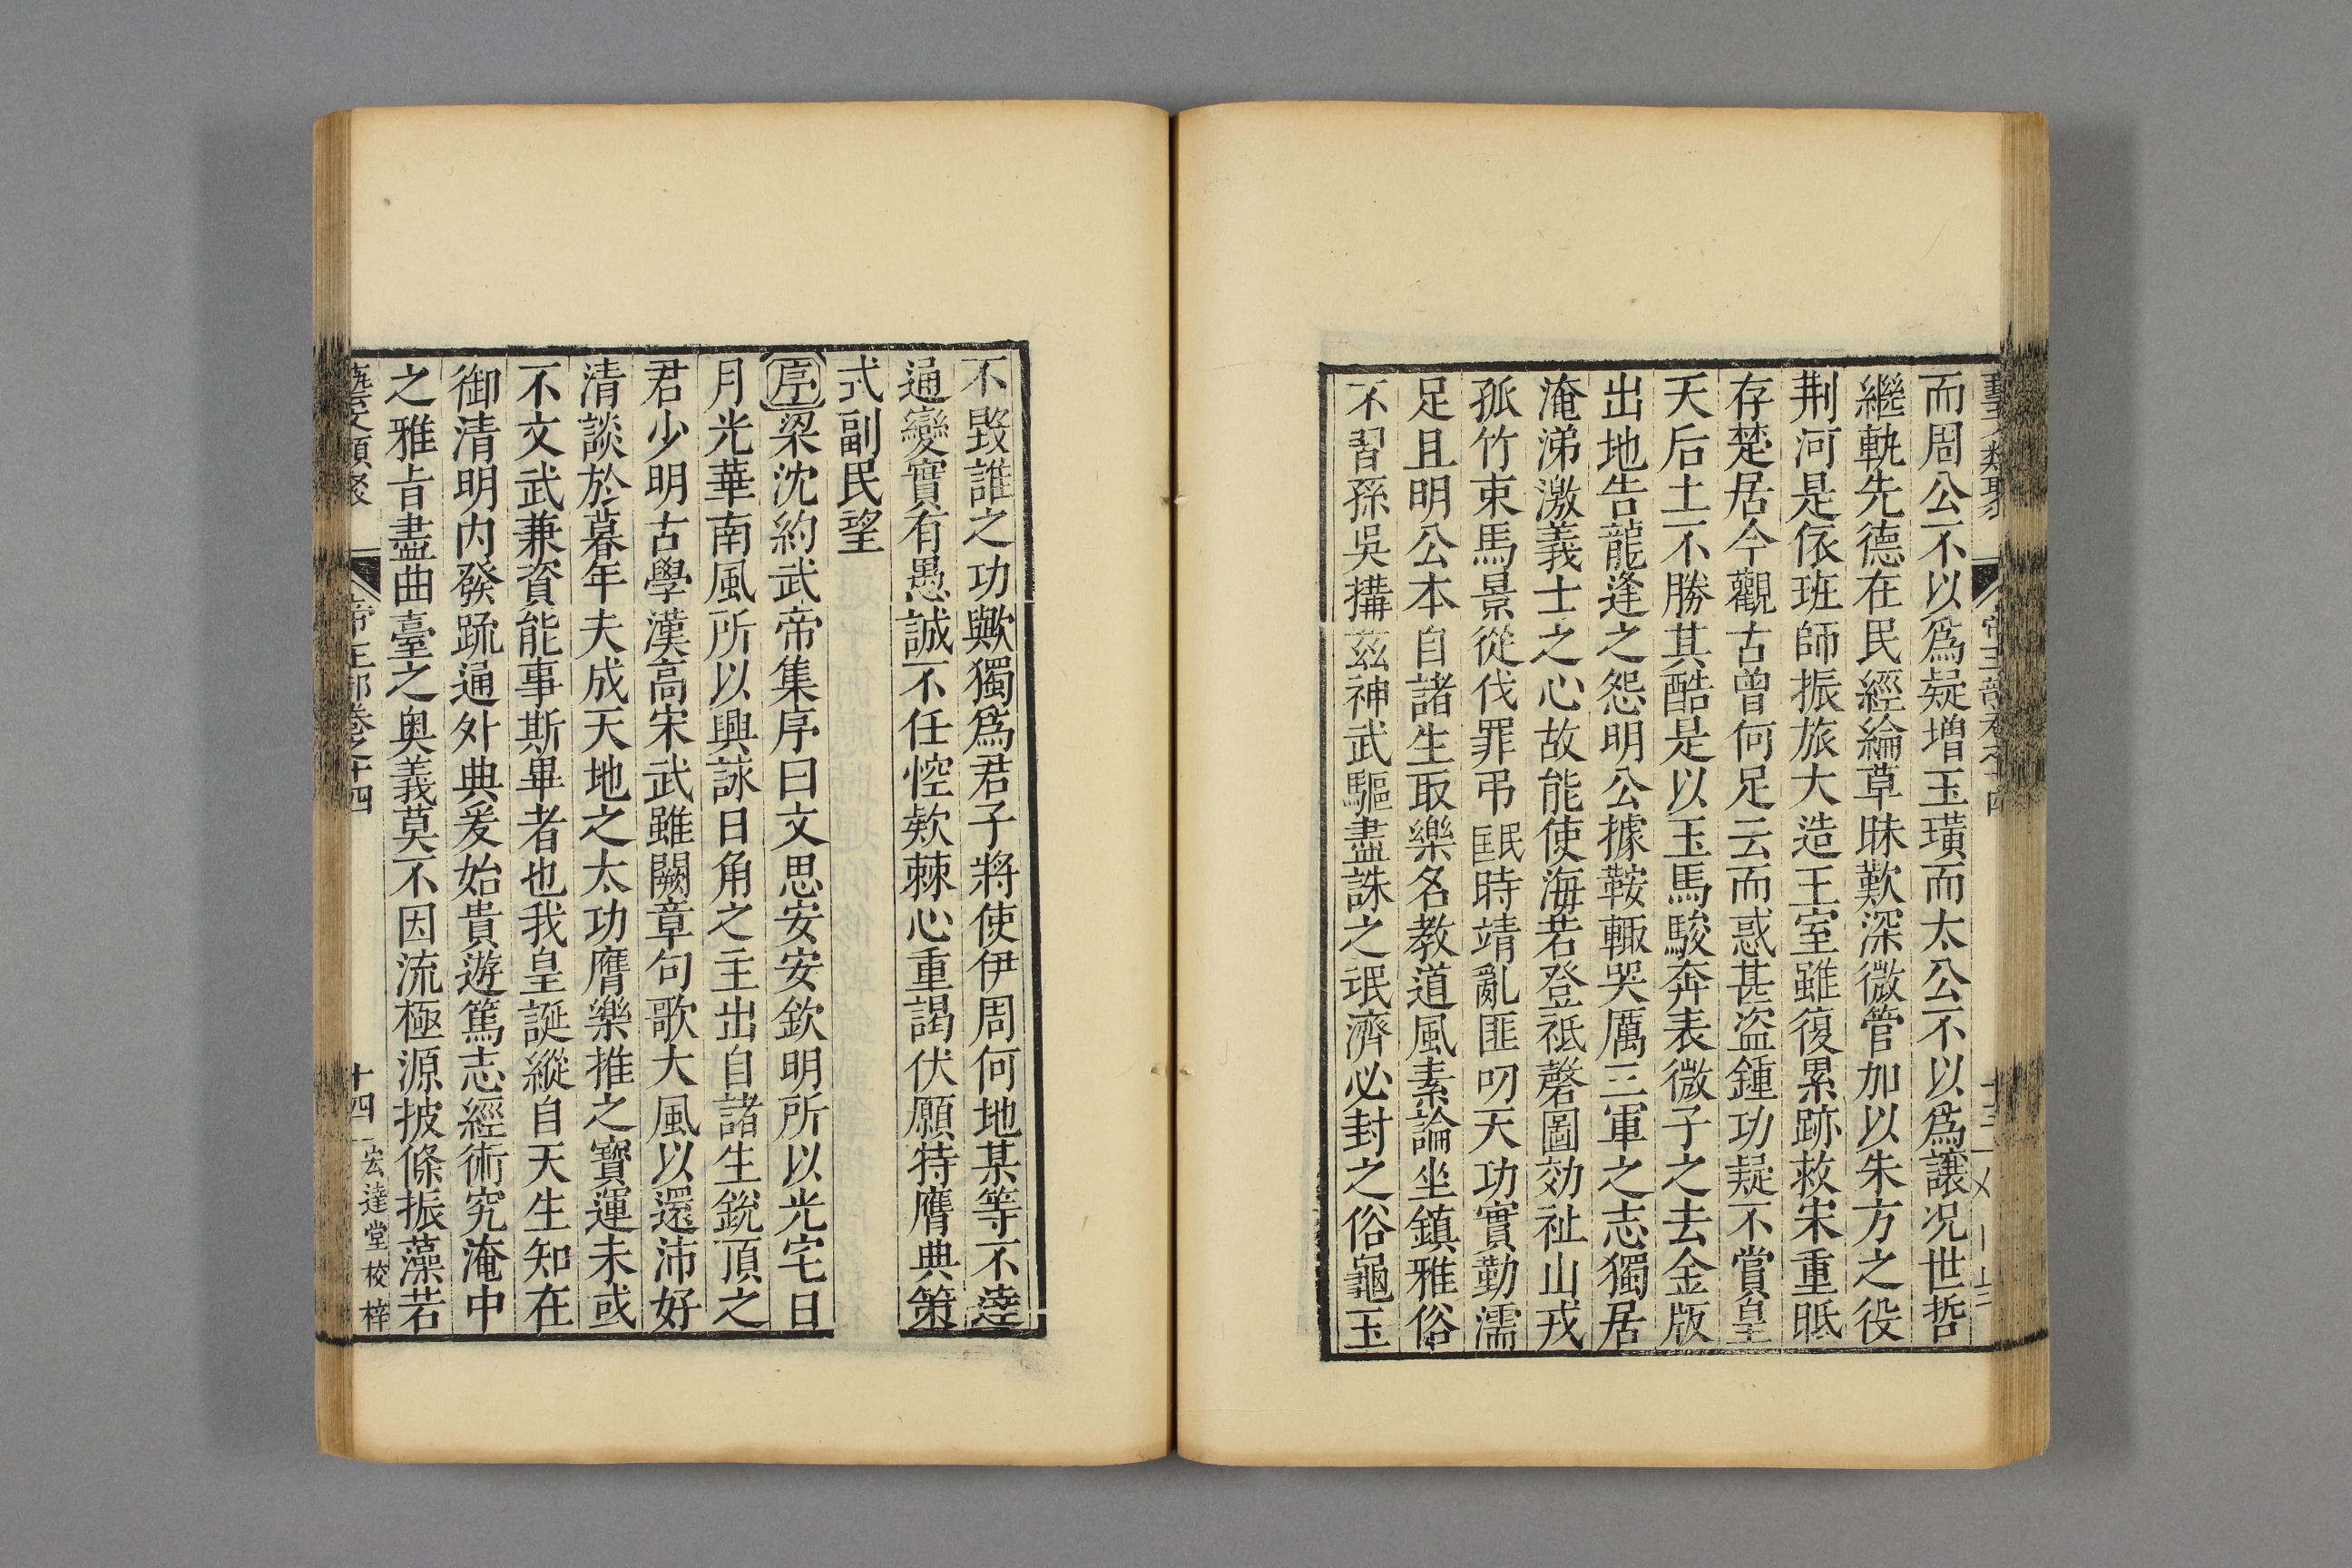 藝文類聚 帝王部卷之十四
而周公不以爲疑增玉璜而太公不以爲讓况世哲
繼軌先德在民經綸草昧歎深微管加以朱方之役
荆河是依班師振旅大造王室雖復累跡救宋重眡
存楚居今觀古曽何足云而惑甚盜鍾功疑不賞皇
天后土不勝其酷是以玉馬駿奔表微子之去金版
出地告龍逢之怨明公據鞍輙哭厲三軍之志獨居
淹涕激義士之心故能使海若登祇罄圖効祉山戎
孤竹束馬景從伐罪弔民一匡時靖亂匪叨天功實勤濡
足且明公本自諸生取樂名教道風素論坐鎮雅俗
不習孫吳搆茲神武驅盡誅之氓濟必封之俗龜玉
不毀誰之功歟獨爲君子將使伊周何地某等不達
通變實有愚誠不任悾欵棘心重謁伏願特膺典策
式副民望
序梁沈約武帝集序曰文思安安欽明所以光宅日
月光華南風所以興詠日角之主出自諸生銳頂之
君少明古學漢高宋武雖闕章句歌大風以還沛好
清談於暮年夫成天地之太功膺樂推之寶運未或
不文武兼資能事斯畢者也我皇誕縱自天生知在
御清明内發疏通外典爰始貴遊篤志經術究淹中
之雅旨盡曲臺之奥義莫不因流極源披條振藻若
藝文類聚 帝王部卷之十四 十四 宏達堂校梓